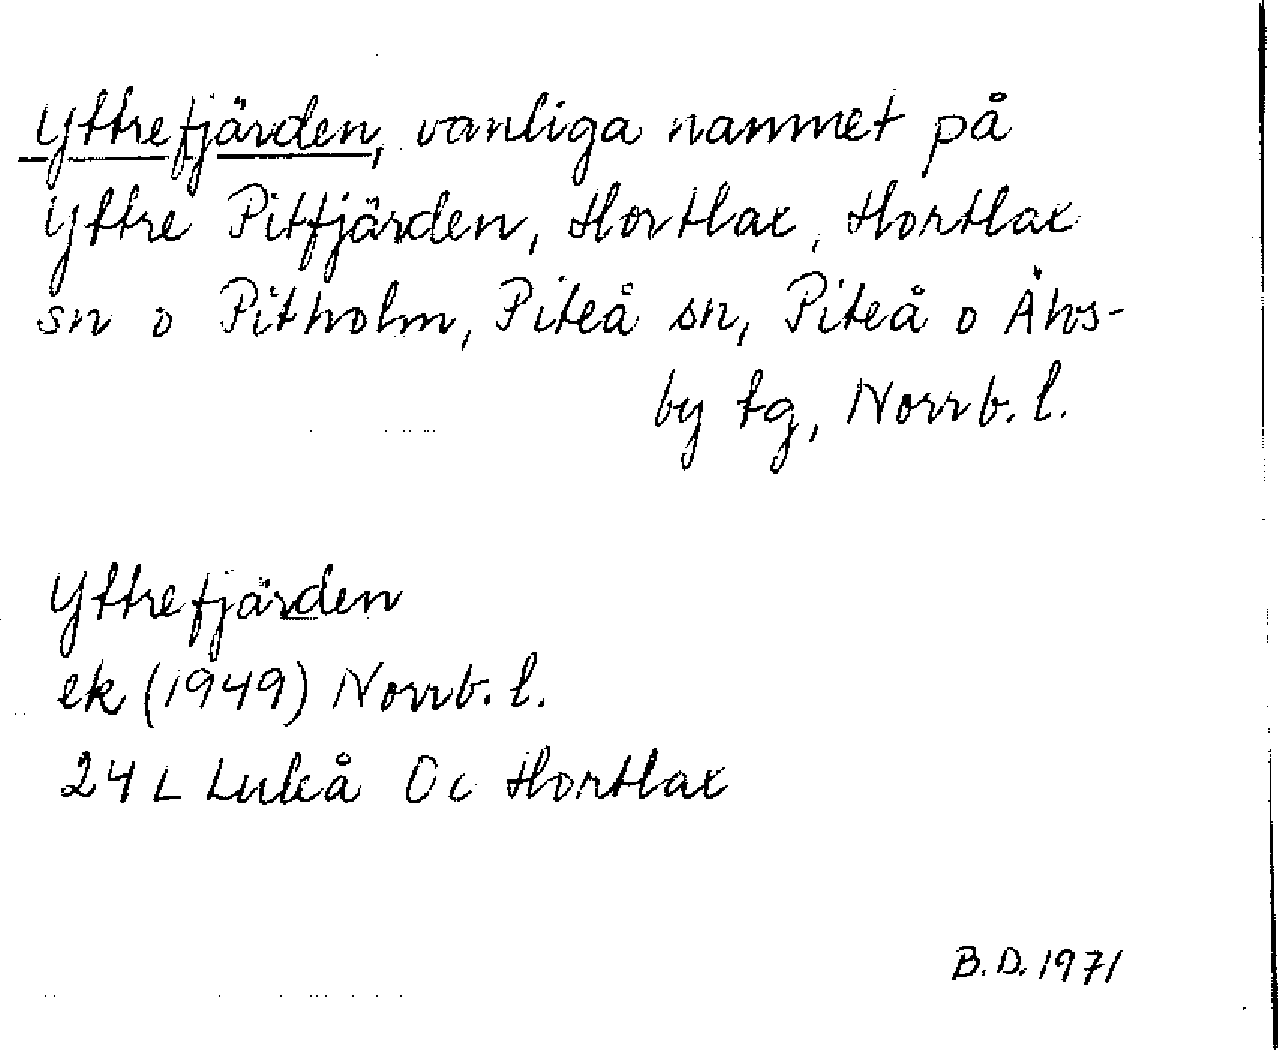 Yttrefjärden, vanliga namnet på
Yttre Pitfjärden, Hortlax, Hortlax
sn o Pitholm, Piteå sn, Piteå o Älvs-
by tg, Norrb. l.
Yttrefjärden
ek (1949) Norrb. l.
24 L Luleå 0c Hortlax
B.D. 1971